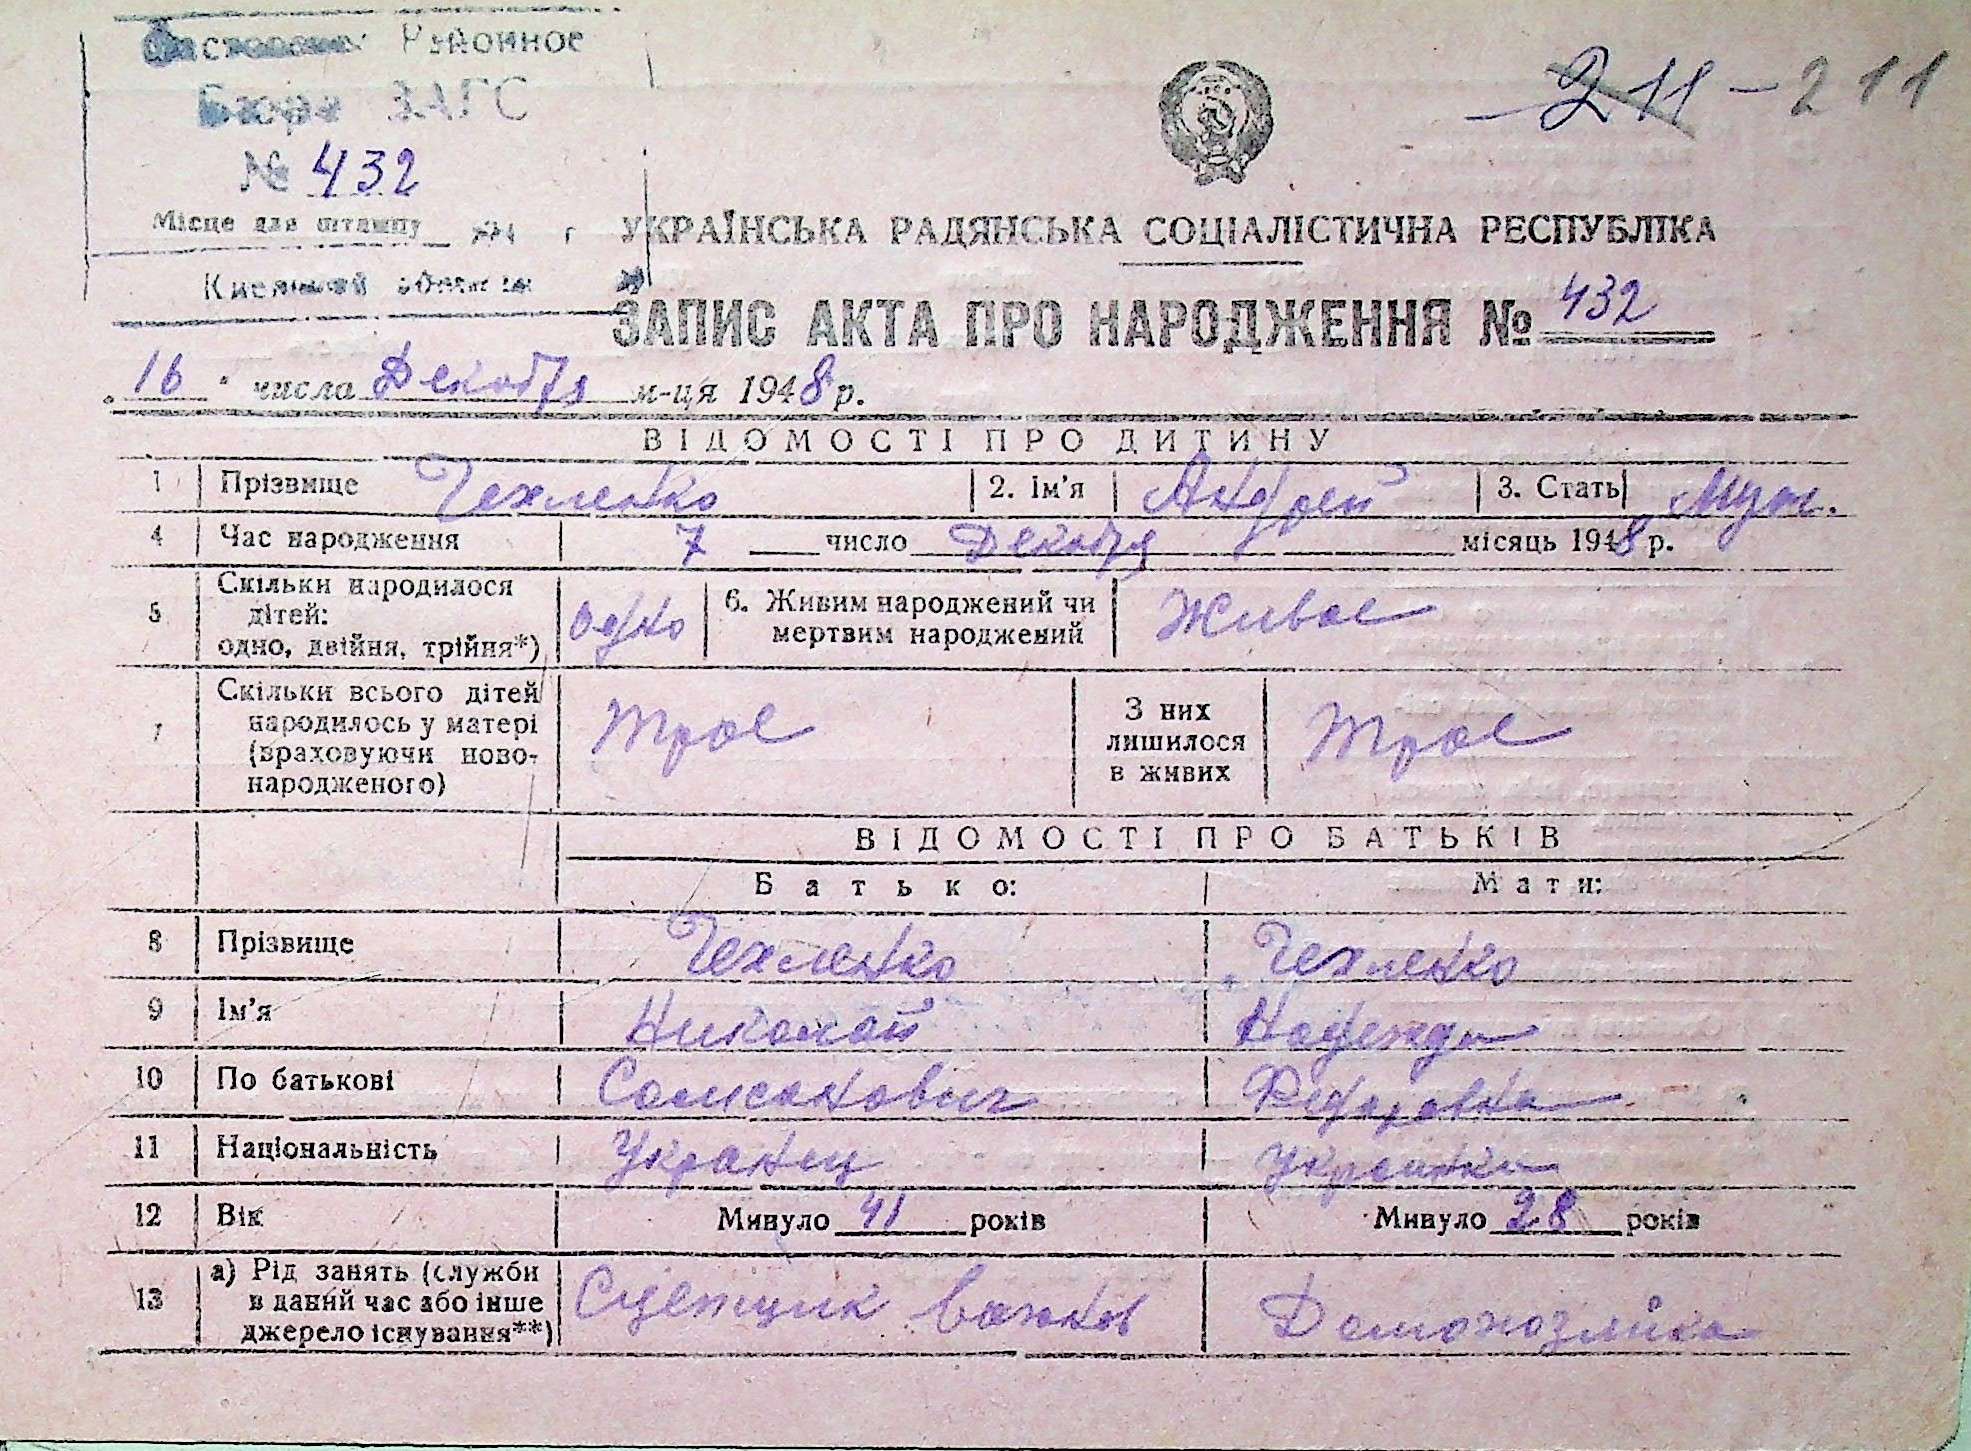 Районное
Бюро ЗАГС
№ 432
Місце для штампу
Киевской области
211 - 211
УКРАЇНСЬКА РАДЯНСЬКА СОЦІАЛІСТИЧНА РЕСПУБЛІКА
ЗАПИС АКТА ПРО НАРОДЖЕННЯ № 432
„16" числа Декабря м-ця 1948 р.
ВІДОМОСТІ ПРО ДИТИНУ
1 Прізвище Чехленко 2. Ім'я Андрей 3. Стать Муж.
4 Час народження 7 число Декабря місяць 1948 р.
5 Скільки народилося дітей: одно, двійня, трійня*) Одно 6. Живим народжений чи мертвим народжений Живое
7 Скільки всього дітей народилось у матері (враховуючи новонародженого) Трое З них лишилося в живих Трое
ВІДОМОСТІ ПРО БАТЬКІВ
Батько: Мати:
8 Прізвище Чехленко Чехленко
9 Ім'я Николай Надежда
10 По батькові Самсонович Федоровна
11 Національність Украинец Украинка
12 Вік Минуло 41 років Минуло 28 років
13 а) Рід занять (служби в даний час або інше джерело існування**) Сцепщик вагонов Домохозяйка